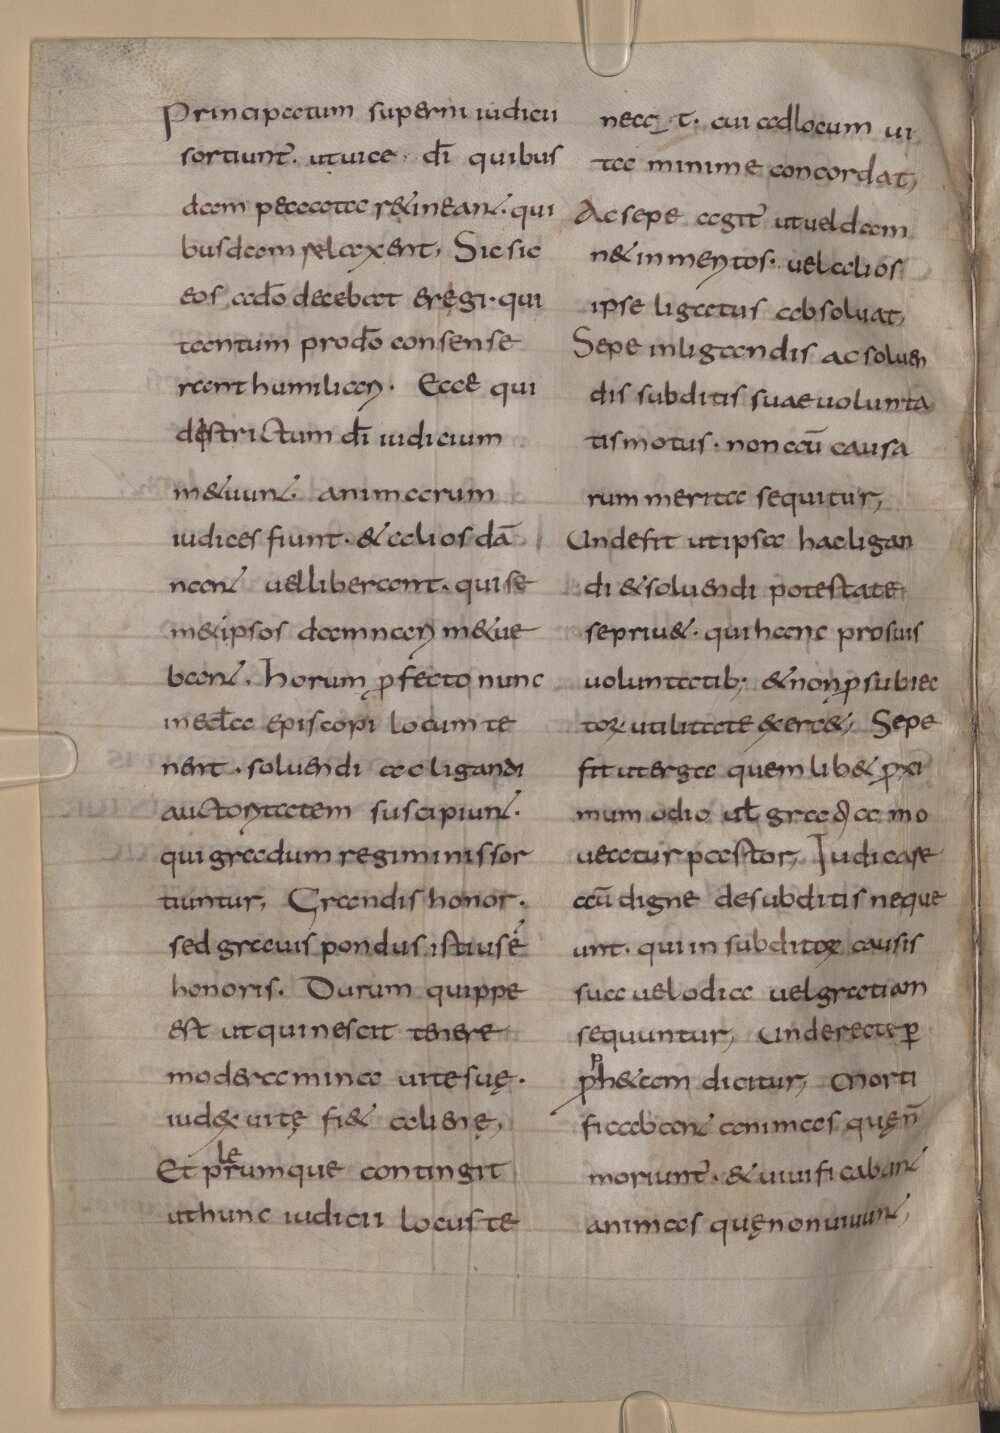 Principatum superni iudicii
sortiunt̄. utuice · dī quibus
dam peccata r&ineant. qui
busdam relaxent, Sic sic
eos addo decebat eregi · qui
tantum prodo consense
rant humiliari. Ecce qui
destrictum dī iudicium
m&uunt. animarum
iudices fiunt · & alios dā
nant uelliberant. quise
m&ipsos damnari m&ue
bant. horum ꝑfecto nunc
ineccl̄a episcopi locum te
nent · soluendi ac ligandi
auctoritatem suscipiunt.
qui gradum regiminis sor
tiuntur, Grandis honor.
sed grauis pondus istius ē
honoris. Durum quippe
est ut qui nescit tenere
moderamina uitesuę.
iud&x uitę fi& alienę,
Et plerumque contingit
ut hunc iudicii locus te
neat. cui adlocum ui
tae minime concordat,
Ac sepe agit̄ ut uel dam
n& inmeritos. uel alios
ipse ligatus absoluat,
Sepe inligandis ac soluen
dis subditis suae uolunta
tis motus. non aū causa
rum merita sequitur,
Unde fit ut ipsa hac ligan
di & soluendi potestate
se priu&. qui hanc pro suis
uoluntatib; & non ꝑ subiec
toꝝ utilitate exerc&, Sepe
fit ut erga quemlib& ꝓxi
mum odio ul̄ gratia mo
ueatur pastor, Iudicare
aū digne de subditis neque
unt. qui in subditoꝝ causis
sua uel odia uel gratiam
sequuntur, Unde recte ꝑ
ꝓph&am dicitur, Morti
ficabant animas quę n̄
moriunt̄. & uiuificabant
animas quę non uiuunt,